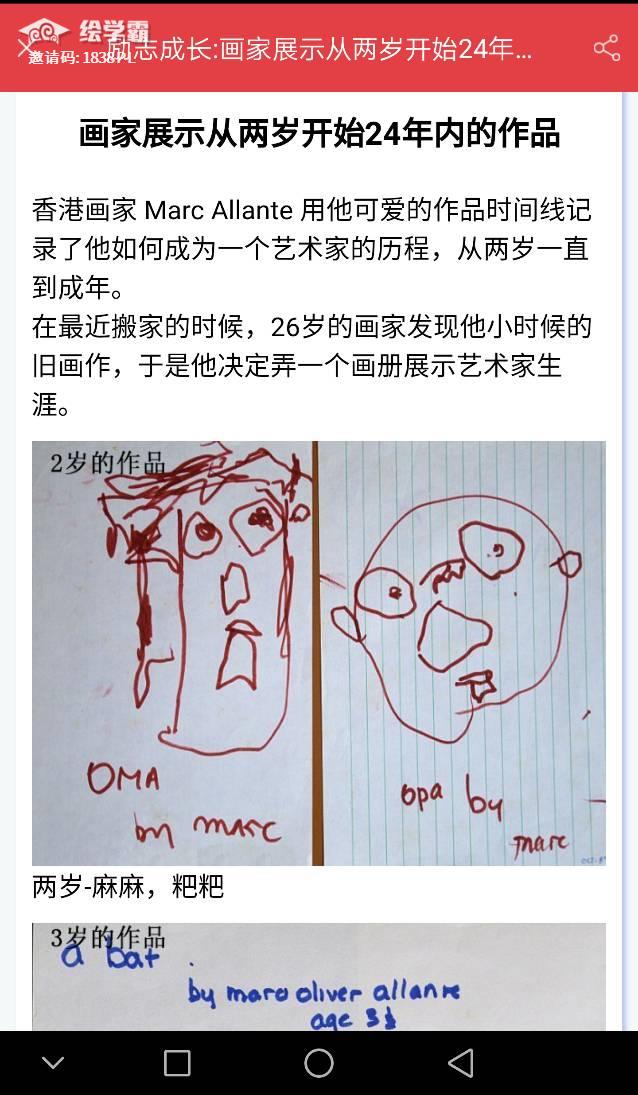 绘学霸
邀请码: 1838PL
励志成长:画家展示从两岁开始24年...
画家展示从两岁开始24年内的作品
香港画家 Marc Allante 用他可爱的作品时间线记
录了他如何成为一个艺术家的历程，从两岁一直
到成年。
在最近搬家的时候，26岁的画家发现他小时候的
旧画作，于是他决定弄一个画册展示艺术家生
涯。
2岁的作品
OMA
by marc
opa by
marc
两岁-麻麻，粑粑
3岁的作品
a bat
by marc oliver allante
age 3½